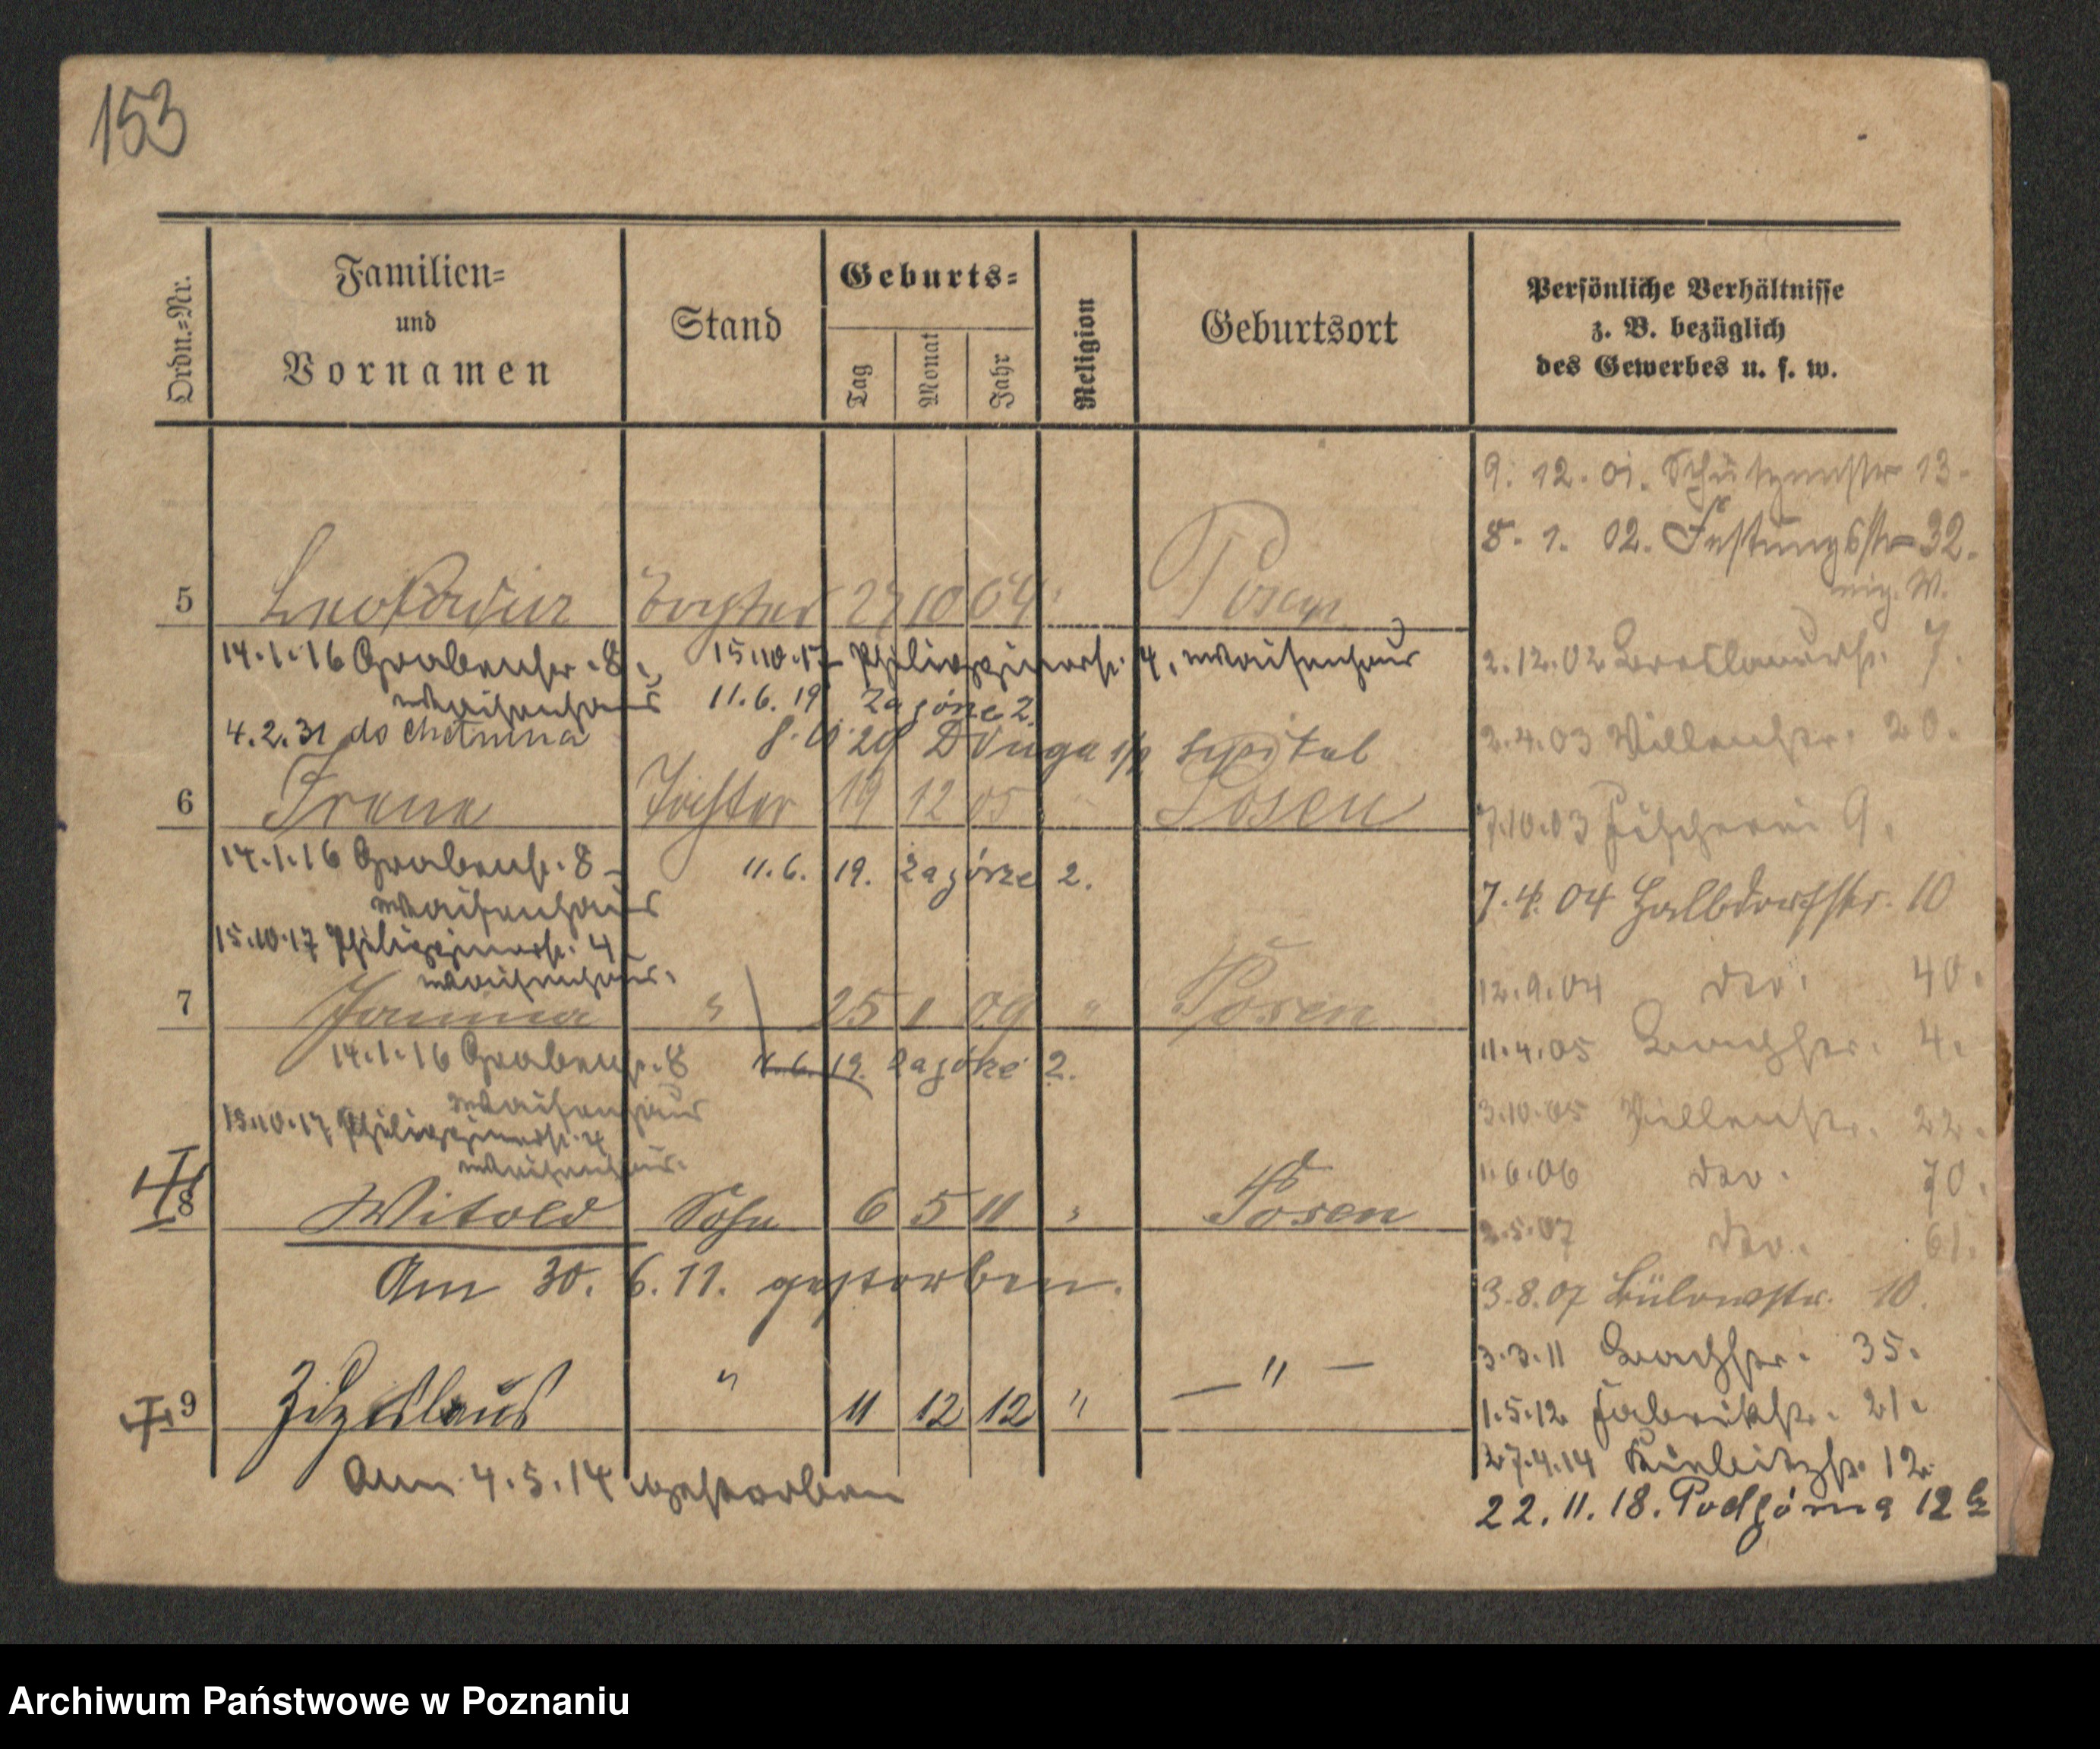 153
Ordn.-Nr.
Familien-
und
Vornamen
Stand
Geburts-
Tag
Monat
Jahr
Religion
Geburtsort
Persönliche Verhältnisse
z. B. bezüglich
des Gewerbes u. s. w.
9. 12. 01. Schützenstr 13.
8. 1. 02. Festungsstr 32.
5 Leokadia Tochter 27 10 04 Posen
2.12.02 Breslauerstr. 7.
14.1.16 Grabenstr. 8, 15.10.17 Philippinerstr. 4, Waisenhaus
Waisenhaus 11.6.19 Zagórze 2.
4.2.31 do Chełmna 29 Długa 1/2 szpital
2.4.03 Villenstr. 20.
6 Irene Tochter 19 12 05 Posen
7.10.03 Fischerei 9.
14.1.16 Grabenstr. 8 11.6.19. Zagórze 2.
Waisenhaus
7.4.04 Halbdorfstr. 10
15.10.17 Philippinerstr. 4
Waisenhaus.
12.9.04 do. 40.
7 Janina " 25 1 09 " Posen
11.4.05 Bachstr. 4.
14.1.16 Grabenstr. 8 11.6.19. Zagórze 2.
Waisenhaus
3.10.05 Villenstr. 22.
15.10.17 Philippinerstr. 4
Waisenhaus.
1.6.06 do. 70.
8 Witold Sohn 6 5 11 " Posen
2.5.07 do. 61.
Am 30. 6. 11. gestorben.
3.8.07 Bülowstr. 10.
3.3.11 Bachstr. 35.
9 Zdzislaus " 11 12 12 " — " —
1.5.12 Fabrikstr. 21.
27.4.14 12.
Am 4.5.14 gestorben
22.11.18. Podgórna 12
Archiwum Państwowe w Poznaniu